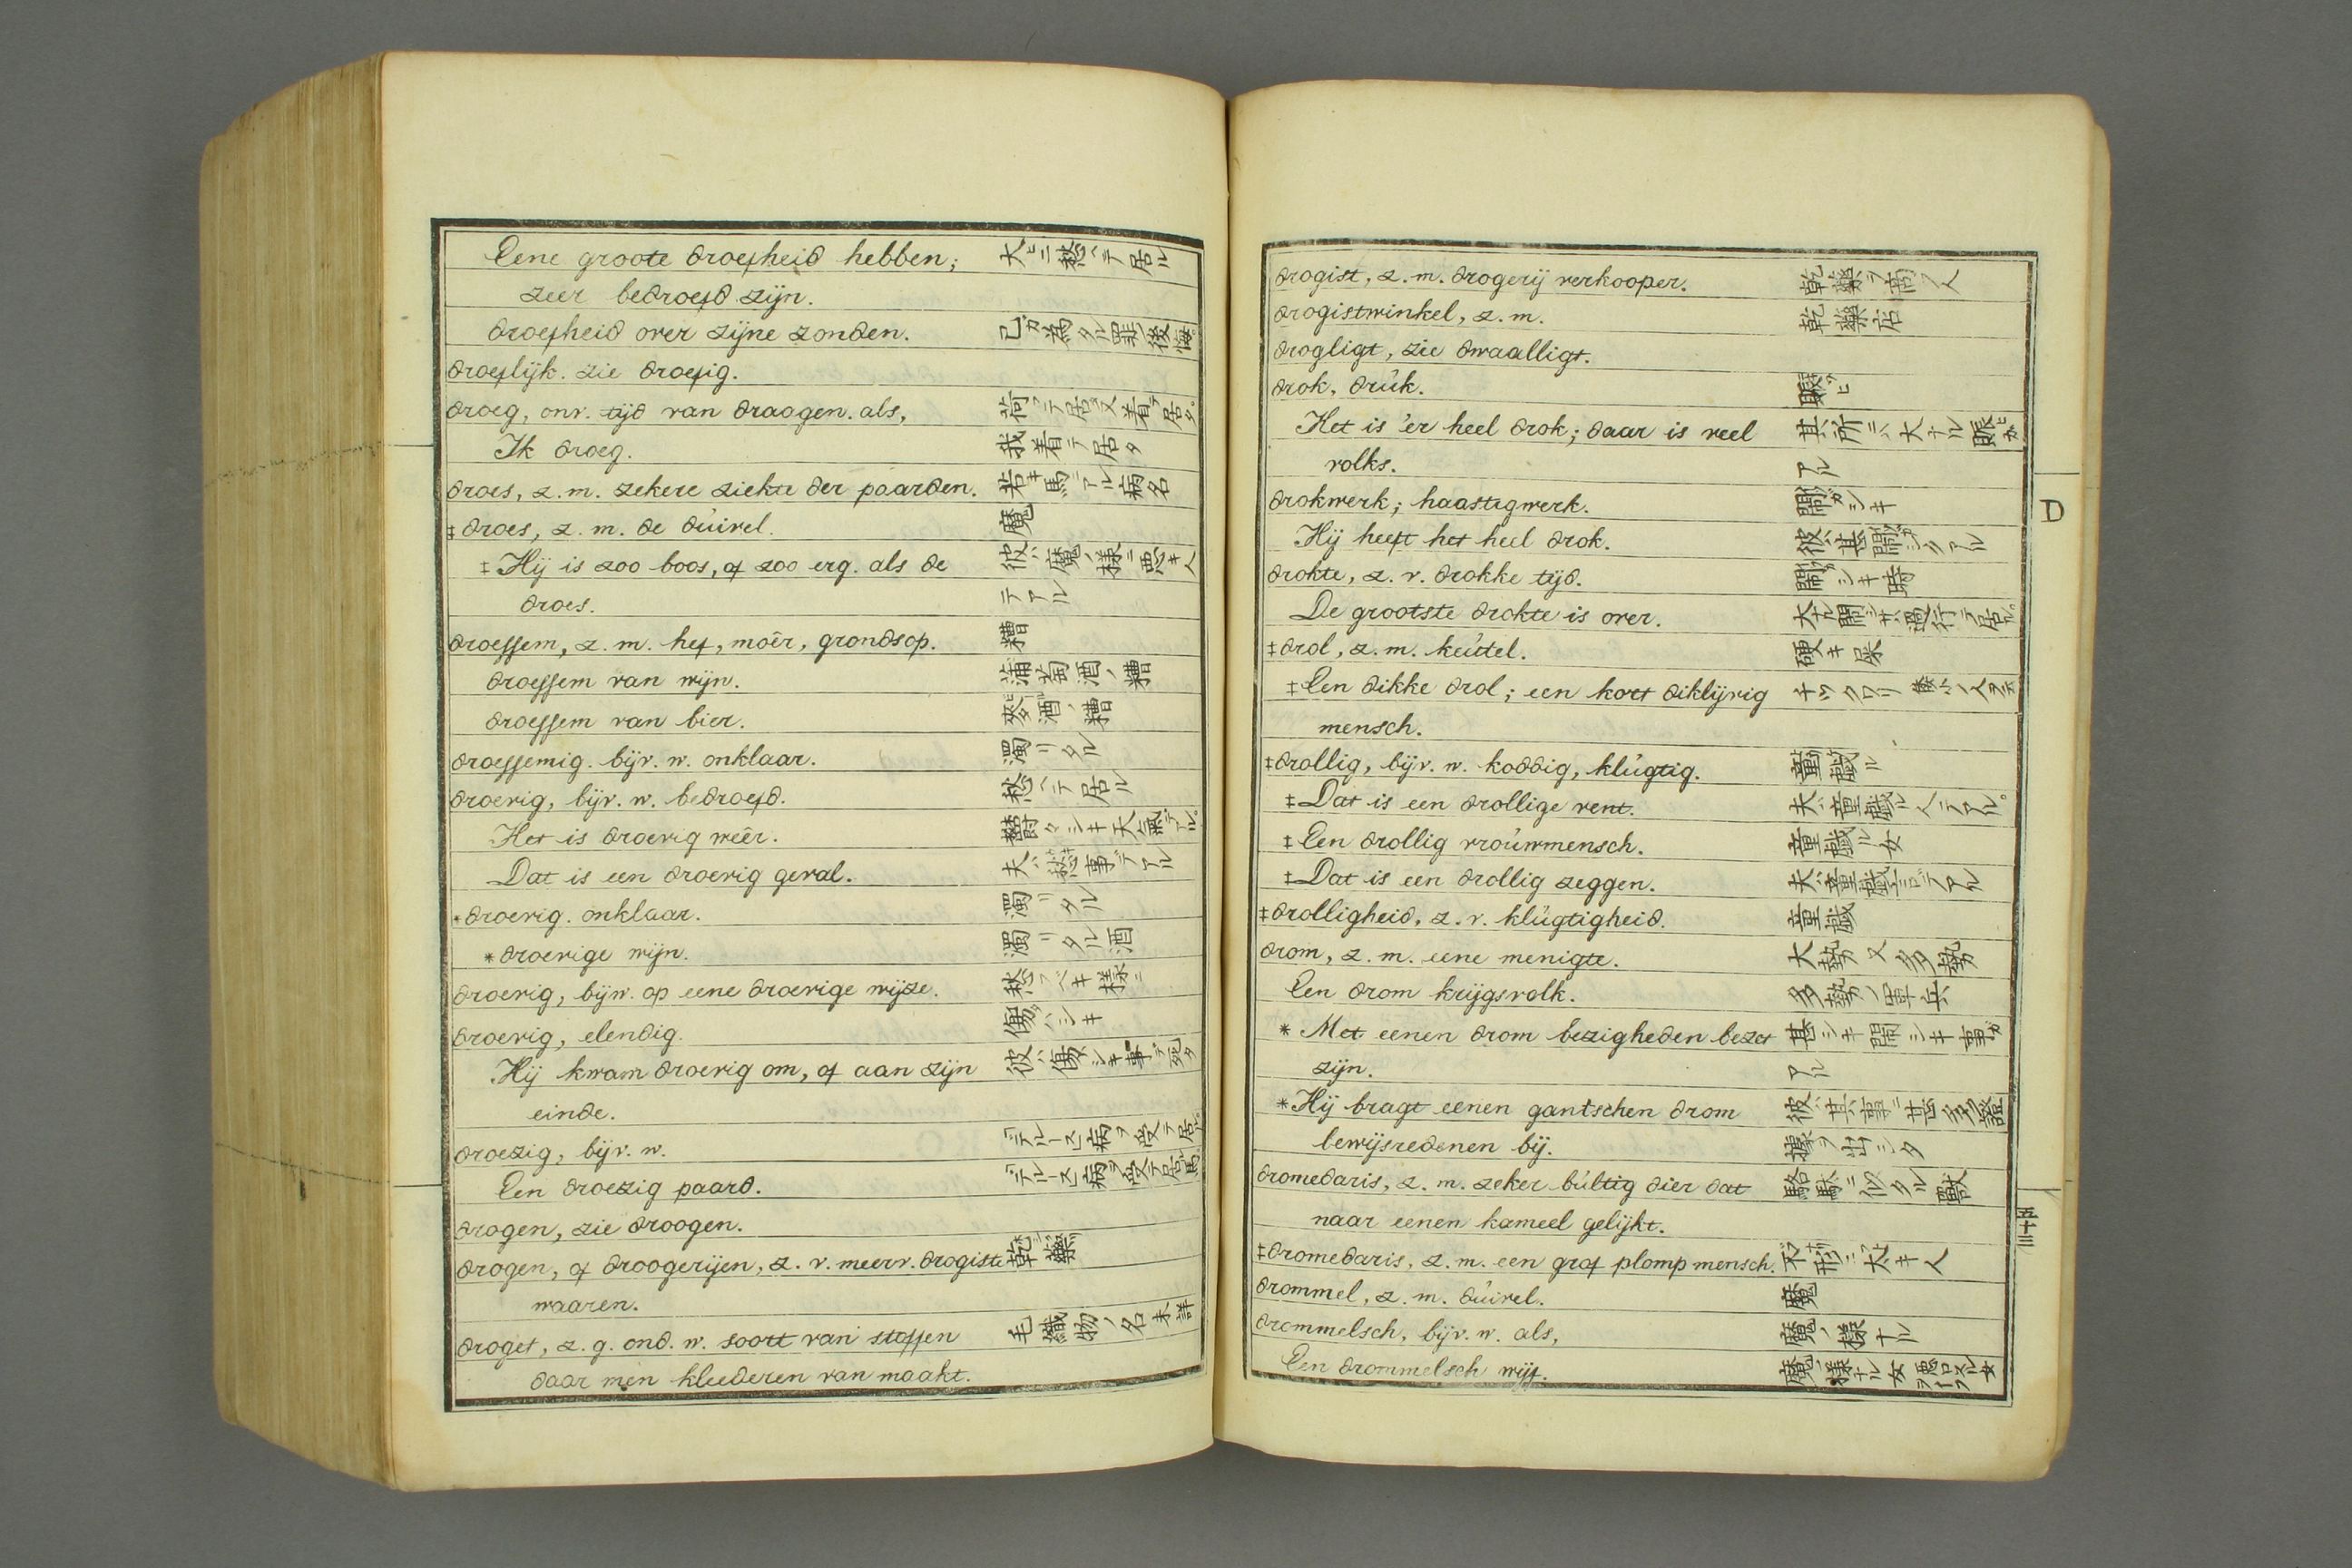 Eene groote droefheid hebben; 大ヒニ愁ヘテ居ル
zeer bedroefd zijn.
droefheid over zijne zonden. 己カ為タル罪ノ後悔
droeflijk. zie droefig.
droeg, onv. tijd van draagen. als, 荷フテ居又着テ居タ
Ik droeg. 我着テ居タ
droes, z. m. zekere ziekte der paarden. 若キ馬ニアル病名
‡droes, z. m. de dúivel. 魔
‡Hij is zoo boos, of zoo erg. als de 彼ハ魔ノ様ニ悪キ人
droes. テアル
droessem, z. m. hef, moêr, grondsop. 糟
droessem van wijn. 蒲萄酒ノ糟
droessem van bier. 麥酒ノ糟
droessemig. bijv. w. onklaar. 濁リタル
droevig, bijv. w. bedroefd. 愁ヘテ居ル
Het is droevig weêr. 欝クシキ天氣テアル
Dat is een droevig geval. 夫ハ愁事デアル
*droevig. onklaar. 濁リタル
*droevige wijn. 濁リタル酒
droevig, bijw. op eene droevige wijze. 愁フベキ様ニ
droevig, elendig. 傷ハシキ
Hij kwam droevig om, of aan zijn 彼ハ傷シキ事デ死タ
einde.
droezig, bijv. w. 病ヲ受テ居
Een droezig paard. 病ヲ受テ居馬
drogen, zie droogen.
drogen, of droogerijen, z. v. meerv. drogiste 乾藥
waaren.
droget, z. g. ond. w. soort van stoffen 毛織物ノ名未詳
daar men kleederen van maakt.
drogist, z. m. drogerij verkooper. 乾藥ヲ商フ人
drogistwinkel, z. m. 乾藥店
drogligt, zie dwaalligt.
drok, drúk. 賑ヒ
Het is 'er heel drok; daar is veel 其所ニハ大ナル賑ヒガ
volks. アル
drokwerk; haastigwerk. 閙ガシキ
Hij heeft het heel drok. 彼ハ甚閙カシクアル
drokte, z. v. drokke tijd. 閙ガシキ時
De grootste drokte is over. 大ナル閙シサハ過行テ居ル
‡drol, z. m. keútel. 硬キ屎
‡Een dikke drol; een kort diklijvig チツクロリ
mensch.
‡drollig, bijv. w. koddig, klúgtig. 童戯ル
‡Dat is een drollige vent. 夫ハ童戯ル人テアル
‡Een drollig vroúwmensch. 童戯ル女
‡Dat is een drollig zeggen. 夫ハ童戯言デアル
‡drolligheid, z. v. klúgtigheid. 童戯
drom, z. m. eene menigte. 大勢又多勢
Een drom krijgsvolk. 多勢ノ軍兵
*Met eenen drom bezigheden bezet 甚シキ閙シキ事ガ
zijn. アル
*Hij bragt eenen gantschen drom 彼ハ其事ニ甚多證
bewijsredenen bij. 據ヲ出シタ
dromedaris, z. m. zeker búltig dier dat 駱駝ニ似タル獸
naar eenen kameel gelijkt.
‡dromedaris, z. m. een grof plomp mensch. 不形ニ太キ人
drommel, z. m. dúivel. 魔
drommelsch, bijv. w. als, 魔ノ様ナル
Een drommelsch wijf. 魔ノ様ナル女
D
五十三